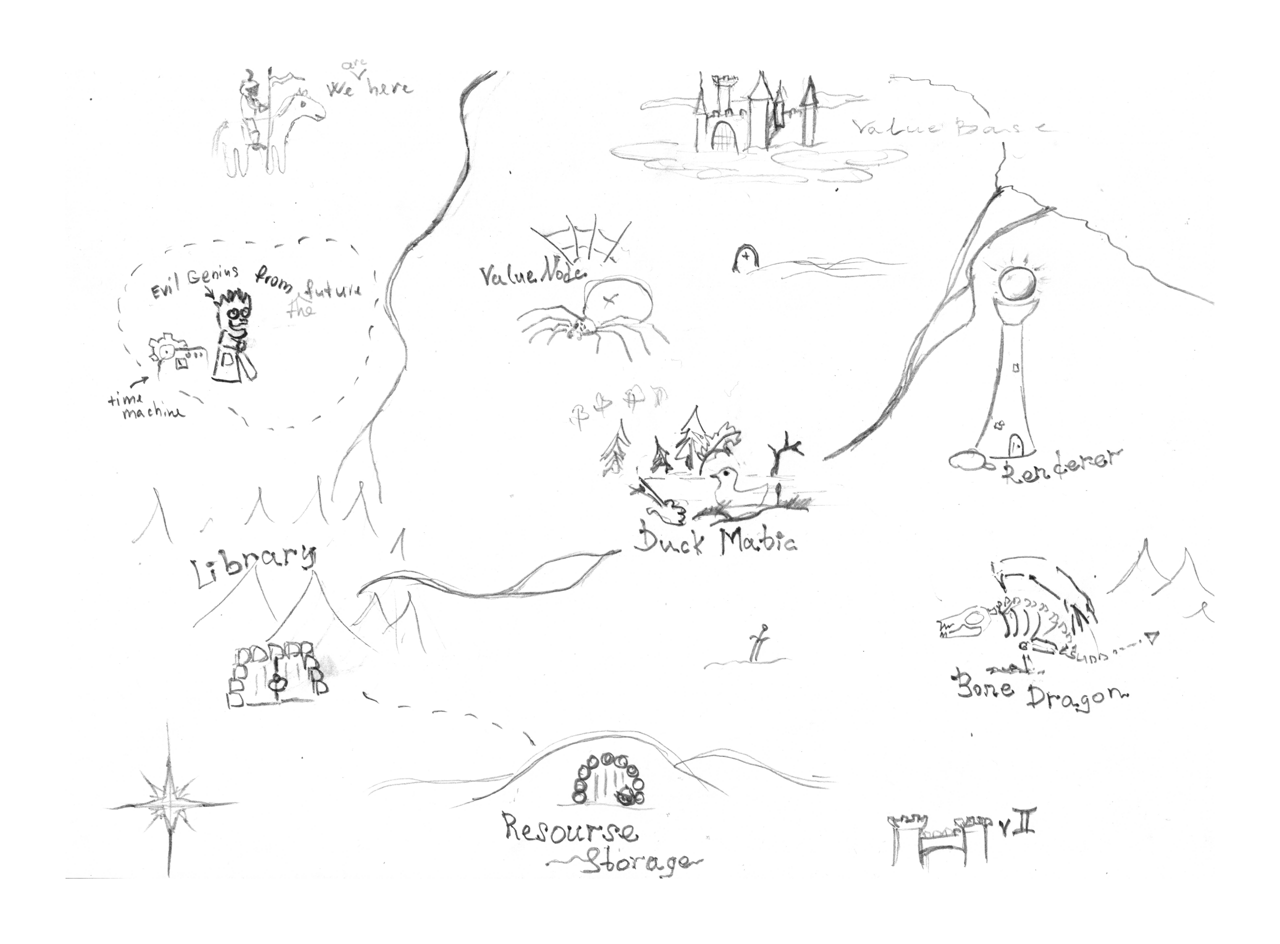 We are here
Value Base
Evil Genius from the future
time
machine
Value Node
Renderer
Duck Mabic
Library
Bone Dragon
Resourse
Storage
v II